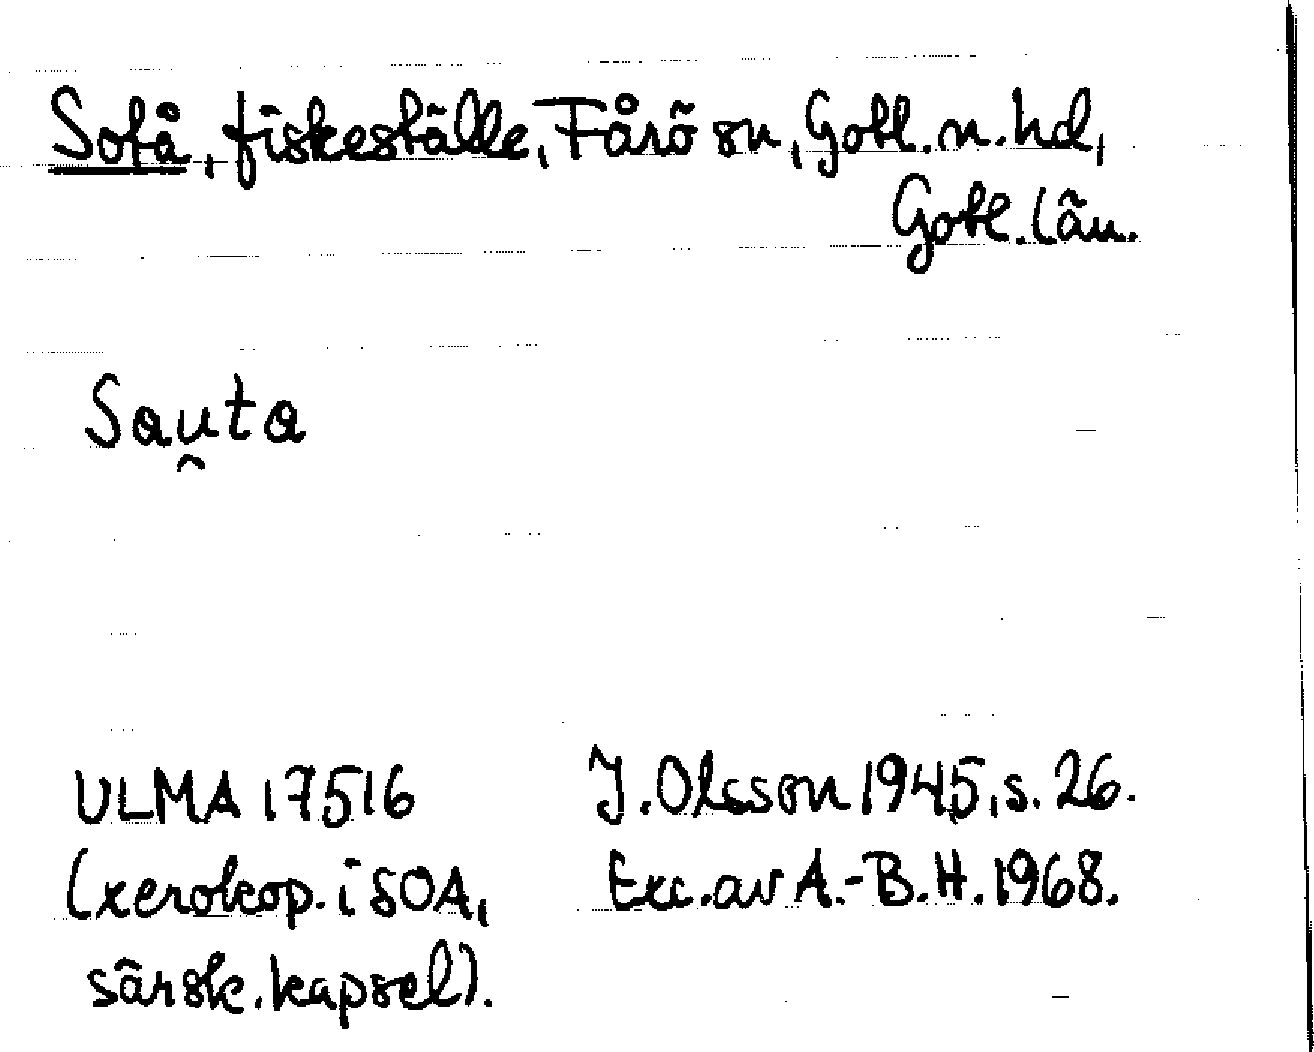 Sotå, fiskeställe, Fårö sn, Gotl. n. hd,
Gotl. län.
Sau̯ta
ULMA 17516
(xerokop. i SOA,
särsk. kapsel).
J. Olsson 1945, s. 26.
Exc. av A.-B. H. 1968.